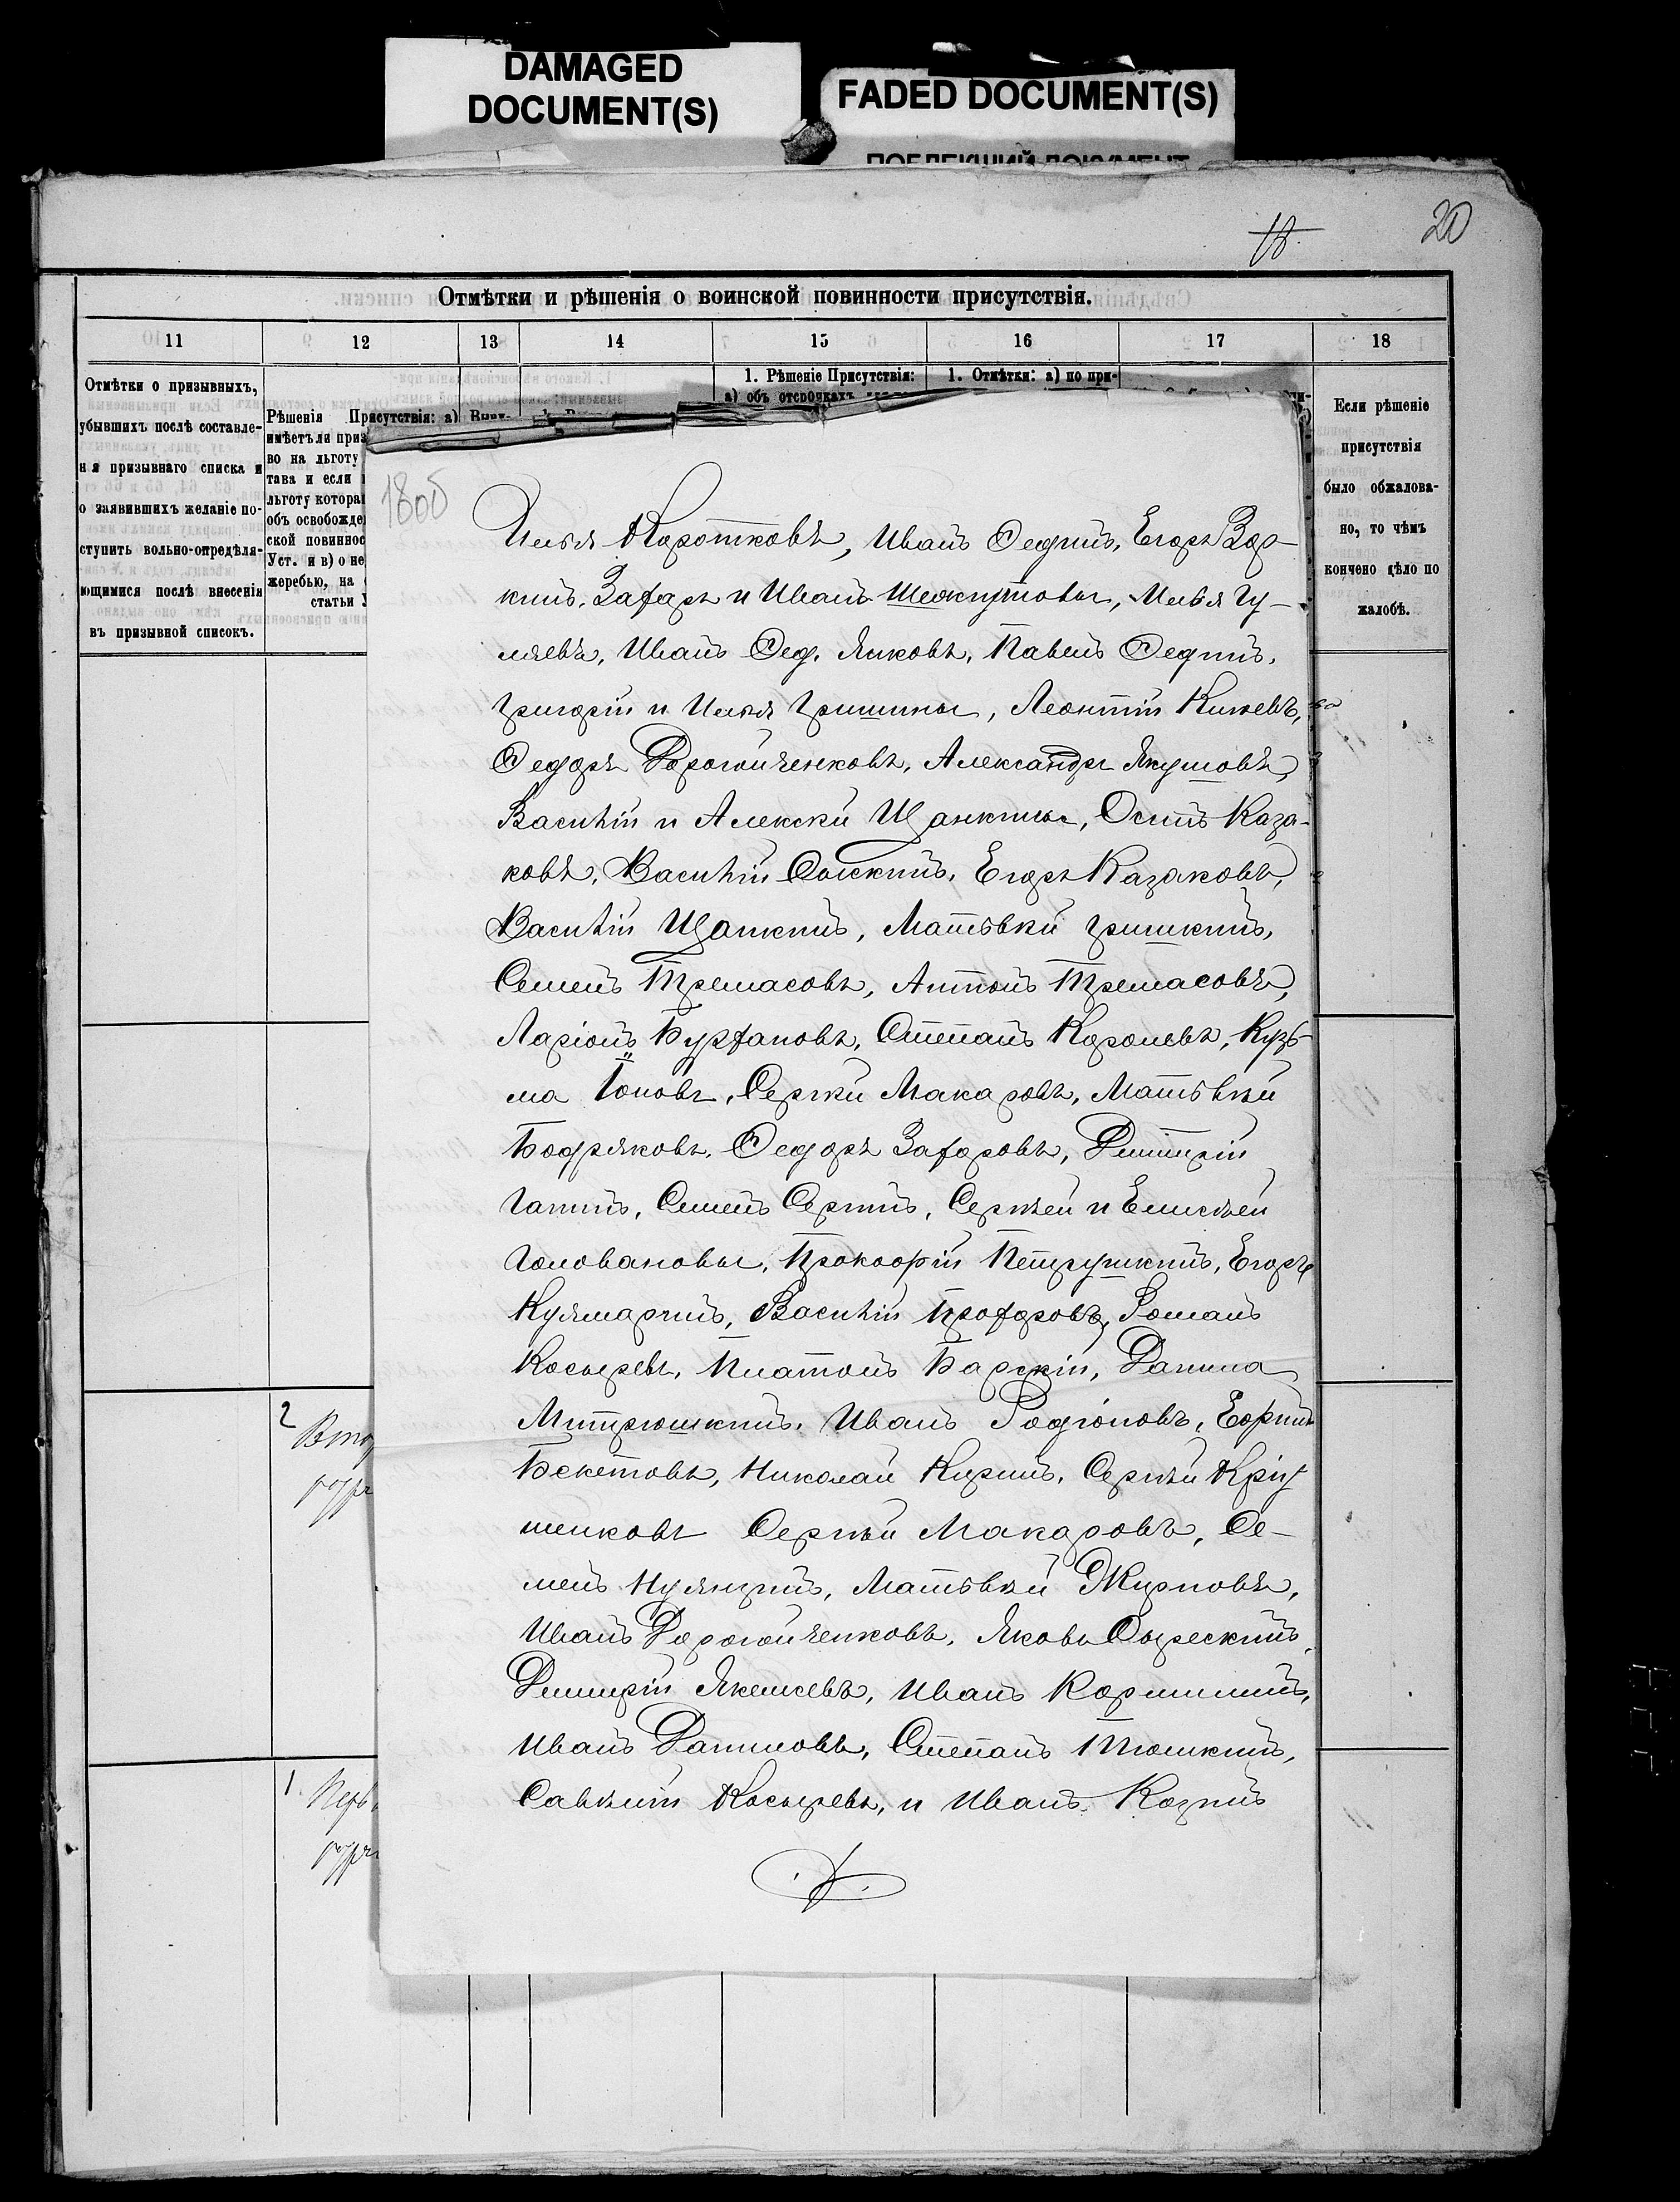 DAMAGED
DOCUMENT(S)
FADED DOCUMENT(S)
20
Отмѣтки и рѣшенія о воинской повинности присутствія.
11 12 13 14 15 16 17 18
Отмѣтки о призывныхъ,
убывшихъ послѣ составле-
нія призывнаго списка и
о заявившихъ желаніе по-
ступить вольно-опредѣля-
ющимися послѣ внесенія
въ призывной списокъ.
Рѣшенія Присутствія: а)
имѣетъ ли приз
во на льготу
тава и если
льготу котора
объ освобожде
ской повиннос
Уст. и в) о не
жеребью, на
статьи
1. Рѣшеніе Присутствія:
а) объ отсрочкахъ
1. Отмѣтки: а) по при-
Если рѣшеніе
присутствія
было обжалова-
но, то чѣмъ
кончено дѣло по
жалобѣ.
1805
Илья Коротковъ, Иванъ Ѳединъ, Егоръ Зор-
кинъ, Захаръ и Иванъ Шеокутовы, Илья Гу-
ляевъ, Иванъ Ѳед. Яиковъ, Павелъ Ѳединъ,
Григорій и Илья Гришины, Леонтій Кижевъ,
Ѳедоръ Дорогойченковъ, Александръ Якушовъ,
Василій и Алексѣй Щанкины, Осипъ Каза-
ковъ, Василій Сыскинъ, Егоръ Казаковъ,
Василій Щанкинъ, Матвѣй Гришкинъ,
Семенъ Тремасовъ, Антонъ Тремасовъ,
Ларіонъ Бурхановъ, Степанъ Королевъ, Кузь-
ма Іоновъ, Сергѣй Макаровъ, Матвѣй
Бодряковъ, Ѳедоръ Захаровъ, Дмитрій
Ганинъ, Семенъ Сергинъ, Сергѣй и Елисѣй
Головановы, Прокофій Петрушкинъ, Егоръ
Кулмаринъ, Василій Прохоровъ, Романъ
Косыревъ, Платонъ Барскій, Данила
Митрюшкинъ, Иванъ Родіоновъ, Ефримъ
Бекетовъ, Николай Киринъ, Сергѣй
шенковъ Сергѣй Макаровъ, Се-
менъ Нулянзинъ, Матвѣй Журновъ,
Иванъ Дорогойченковъ, Яковъ Сырескинъ,
Дмитрій Якемсевъ, Иванъ Коршининъ,
Иванъ Даниловъ, Степанъ Тюшкинъ,
Савелій Косыревъ, и Иванъ Козинъ
2
Втор
разр
1.
Перв
разр